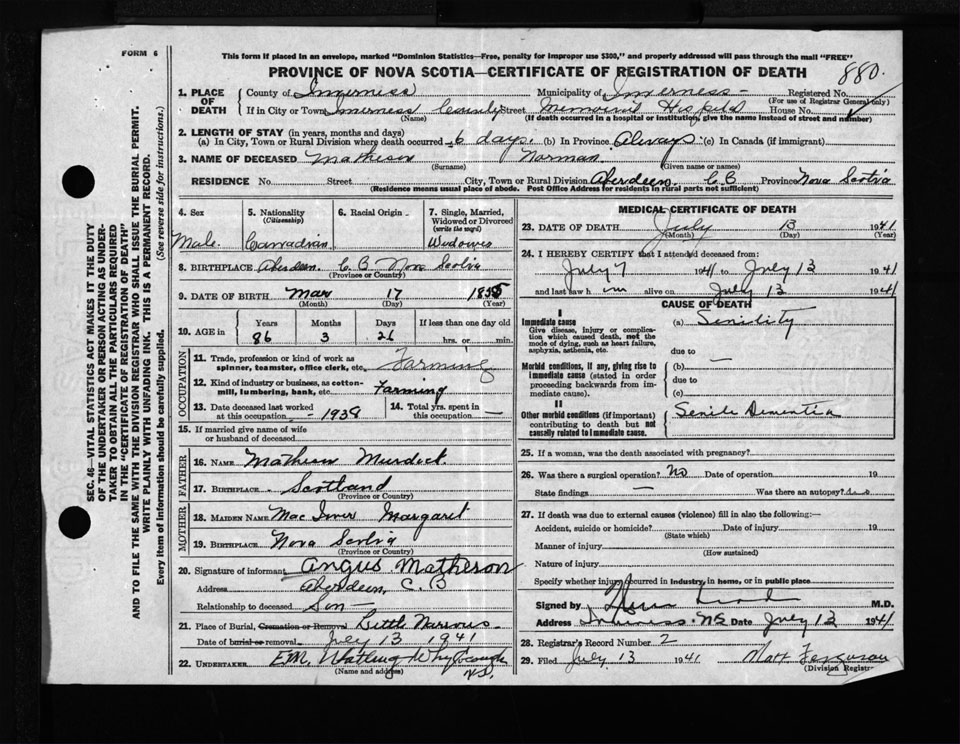 FORM 6
This form if placed in an envelope, marked "Dominion Statistics—Free, penalty for improper use $300," and properly addressed will pass through the mail "FREE"
PROVINCE OF NOVA SCOTIA—CERTIFICATE OF REGISTRATION OF DEATH
880.
SEC. 46—VITAL STATISTICS ACT MAKES IT THE DUTY
OF THE UNDERTAKER OR PERSON ACTING AS UNDER-
TAKER TO OBTAIN ALL THE PARTICULARS REQUIRED
IN THE "CERTIFICATE OF REGISTRATION OF DEATH"
AND TO FILE THE SAME WITH THE DIVISION REGISTRAR WHO SHALL ISSUE THE BURIAL PERMIT.
WRITE PLAINLY WITH UNFADING INK. THIS IS A PERMANENT RECORD.
Every item of information should be carefully supplied. (See reverse side for instructions.)
1. PLACE OF DEATH
County of Inverness Municipality of Inverness - Registered No.
(For use of Registrar General only)
If in City or Town Inverness County Street Memorial Hospital House No.
(Name) (If death occurred in a hospital or institution, give the name instead of street and number)
2. LENGTH OF STAY (in years, months and days)
(a) In City, Town or Rural Division where death occurred 6 days. (b) In Province Always (c) In Canada (if immigrant)
3. NAME OF DECEASED Matheson Norman.
(Surname) (Given name or names)
RESIDENCE No. Street City, Town or Rural Division Aberdeen C B Province Nova Scotia
(Residence means usual place of abode. Post Office Address for residents in rural parts not sufficient)
4. Sex
Male
5. Nationality
(Citizenship)
Canadian
6. Racial Origin
7. Single, Married,
Widowed or Divorced
(write the word)
Widower
8. BIRTHPLACE Aberdeen. C B Nova Scotia
(Province or Country)
9. DATE OF BIRTH Mar 17 1855
(Month) (Day) (Year)
10. AGE in
Years Months Days If less than one day old
86 3 26 hrs. or min.
OCCUPATION
11. Trade, profession or kind of work as
spinner, teamster, office clerk, etc. Farming
12. Kind of industry or business, as cotton-
mill, lumbering, bank, etc. Farming
13. Date deceased last worked
at this occupation - 1938
14. Total yrs. spent in
this occupation —
15. If married give name of wife
or husband of deceased
FATHER
16. NAME Matheson Murdock.
17. BIRTHPLACE Scotland
(Province or Country)
MOTHER
18. MAIDEN NAME Mac Iver Margaret
19. BIRTHPLACE Nova Scotia
(Province or Country)
20. Signature of informant Angus Matheson
Address Aberdeen, C. B
Relationship to deceased Son —
21. Place of Burial, Cremation or Removal Little Narrows.
Date of burial or removal July 13 1941
22. UNDERTAKER E.M. Whycocomagh
N.S.
(Name and address)
MEDICAL CERTIFICATE OF DEATH
23. DATE OF DEATH July 13 1941
(Month) (Day) (Year)
24. I HEREBY CERTIFY that I attended deceased from:
July 7 1941 to July 13 1941
and last saw h im alive on July 13 1941
CAUSE OF DEATH
I
Immediate cause
Give disease, injury or complica-
tion which caused death, not the
mode of dying, such as heart failure,
asphyxia, asthenia, etc.
(a) Senility
due to —
Morbid conditions, if any, giving rise to
immediate cause (stated in order
proceeding backwards from im-
mediate cause).
(b)
due to
(c)
II
Other morbid conditions (if important)
contributing to death but not
causally related to immediate cause.
Senile Dementia
25. If a woman, was the death associated with pregnancy?
26. Was there a surgical operation? No Date of operation 19
State findings — Was there an autopsy?
27. If death was due to external causes (violence) fill in also the following:—
Accident, suicide or homicide? Date of injury 19
(State which)
Manner of injury
(How sustained)
Nature of injury
Specify whether injury occurred in industry, in home, or in public place
Signed by M.D.
Address Inverness. NS Date July 13 1941
28. Registrar's Record Number 2
29. Filed July 13 1941. Matt Ferguson
(Division Registrar)